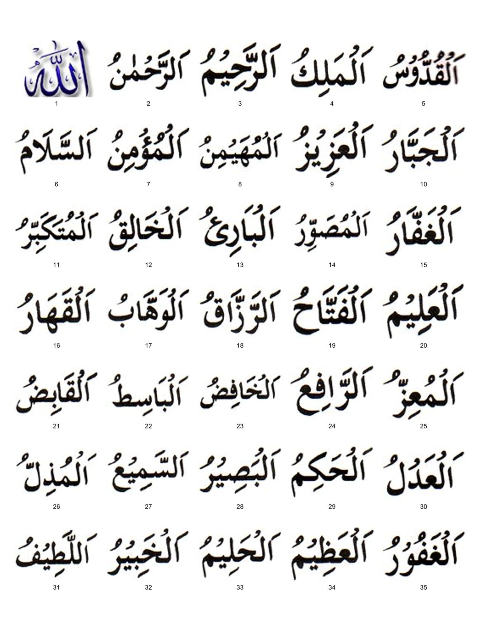 اللّٰه اَلرَّحْمٰنُ اَلرَّحِيْمُ اَلْمَلِكُ اَلْقُدُّوْسُ
1 2 3 4 5
اَلسَّلَامُ اَلْمُؤْمِنُ اَلْمُهَيْمِنُ اَلْعَزِيْزُ اَلْجَبَّارُ
6 7 8 9 10
اَلْمُتَكَبِّرُ اَلْخَالِقُ اَلْبَارِئُ اَلْمُصَوِّرُ اَلْغَفَّارُ
11 12 13 14 15
اَلْقَهَارُ اَلْوَهَّابُ اَلرَّزَّاقُ اَلْفَتَّاحُ اَلْعَلِيْمُ
16 17 18 19 20
اَلْقَابِضُ اَلْبَاسِطُ اَلْخَافِضُ اَلرَّافِعُ اَلْمُعِزُّ
21 22 23 24 25
اَلْمُذِلُّ اَلسَّمِيْعُ اَلْبَصِيْرُ اَلْحَكِمُ اَلْعَدْلُ
26 27 28 29 30
اَللَّطِيْفُ اَلْخَبِيْرُ اَلْحَلِيْمُ اَلْعَظِيْمُ اَلْغَفُوْرُ
31 32 33 34 35